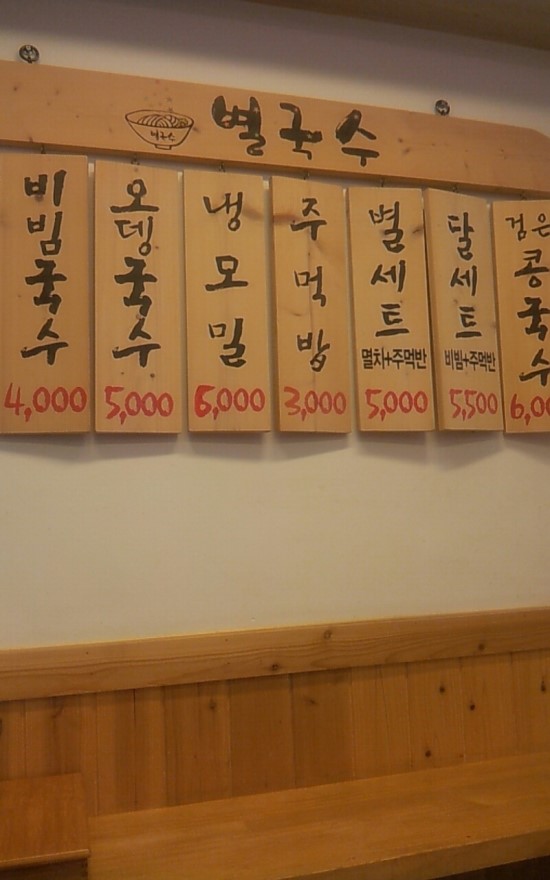 별국수
비빔국수
4,000
오뎅국수
5,000
냉모밀
6,000
주먹밥
3,000
별세트
멸치+주먹반
5,000
달세트
비빔+주먹반
5,500
검은콩국수
6,00